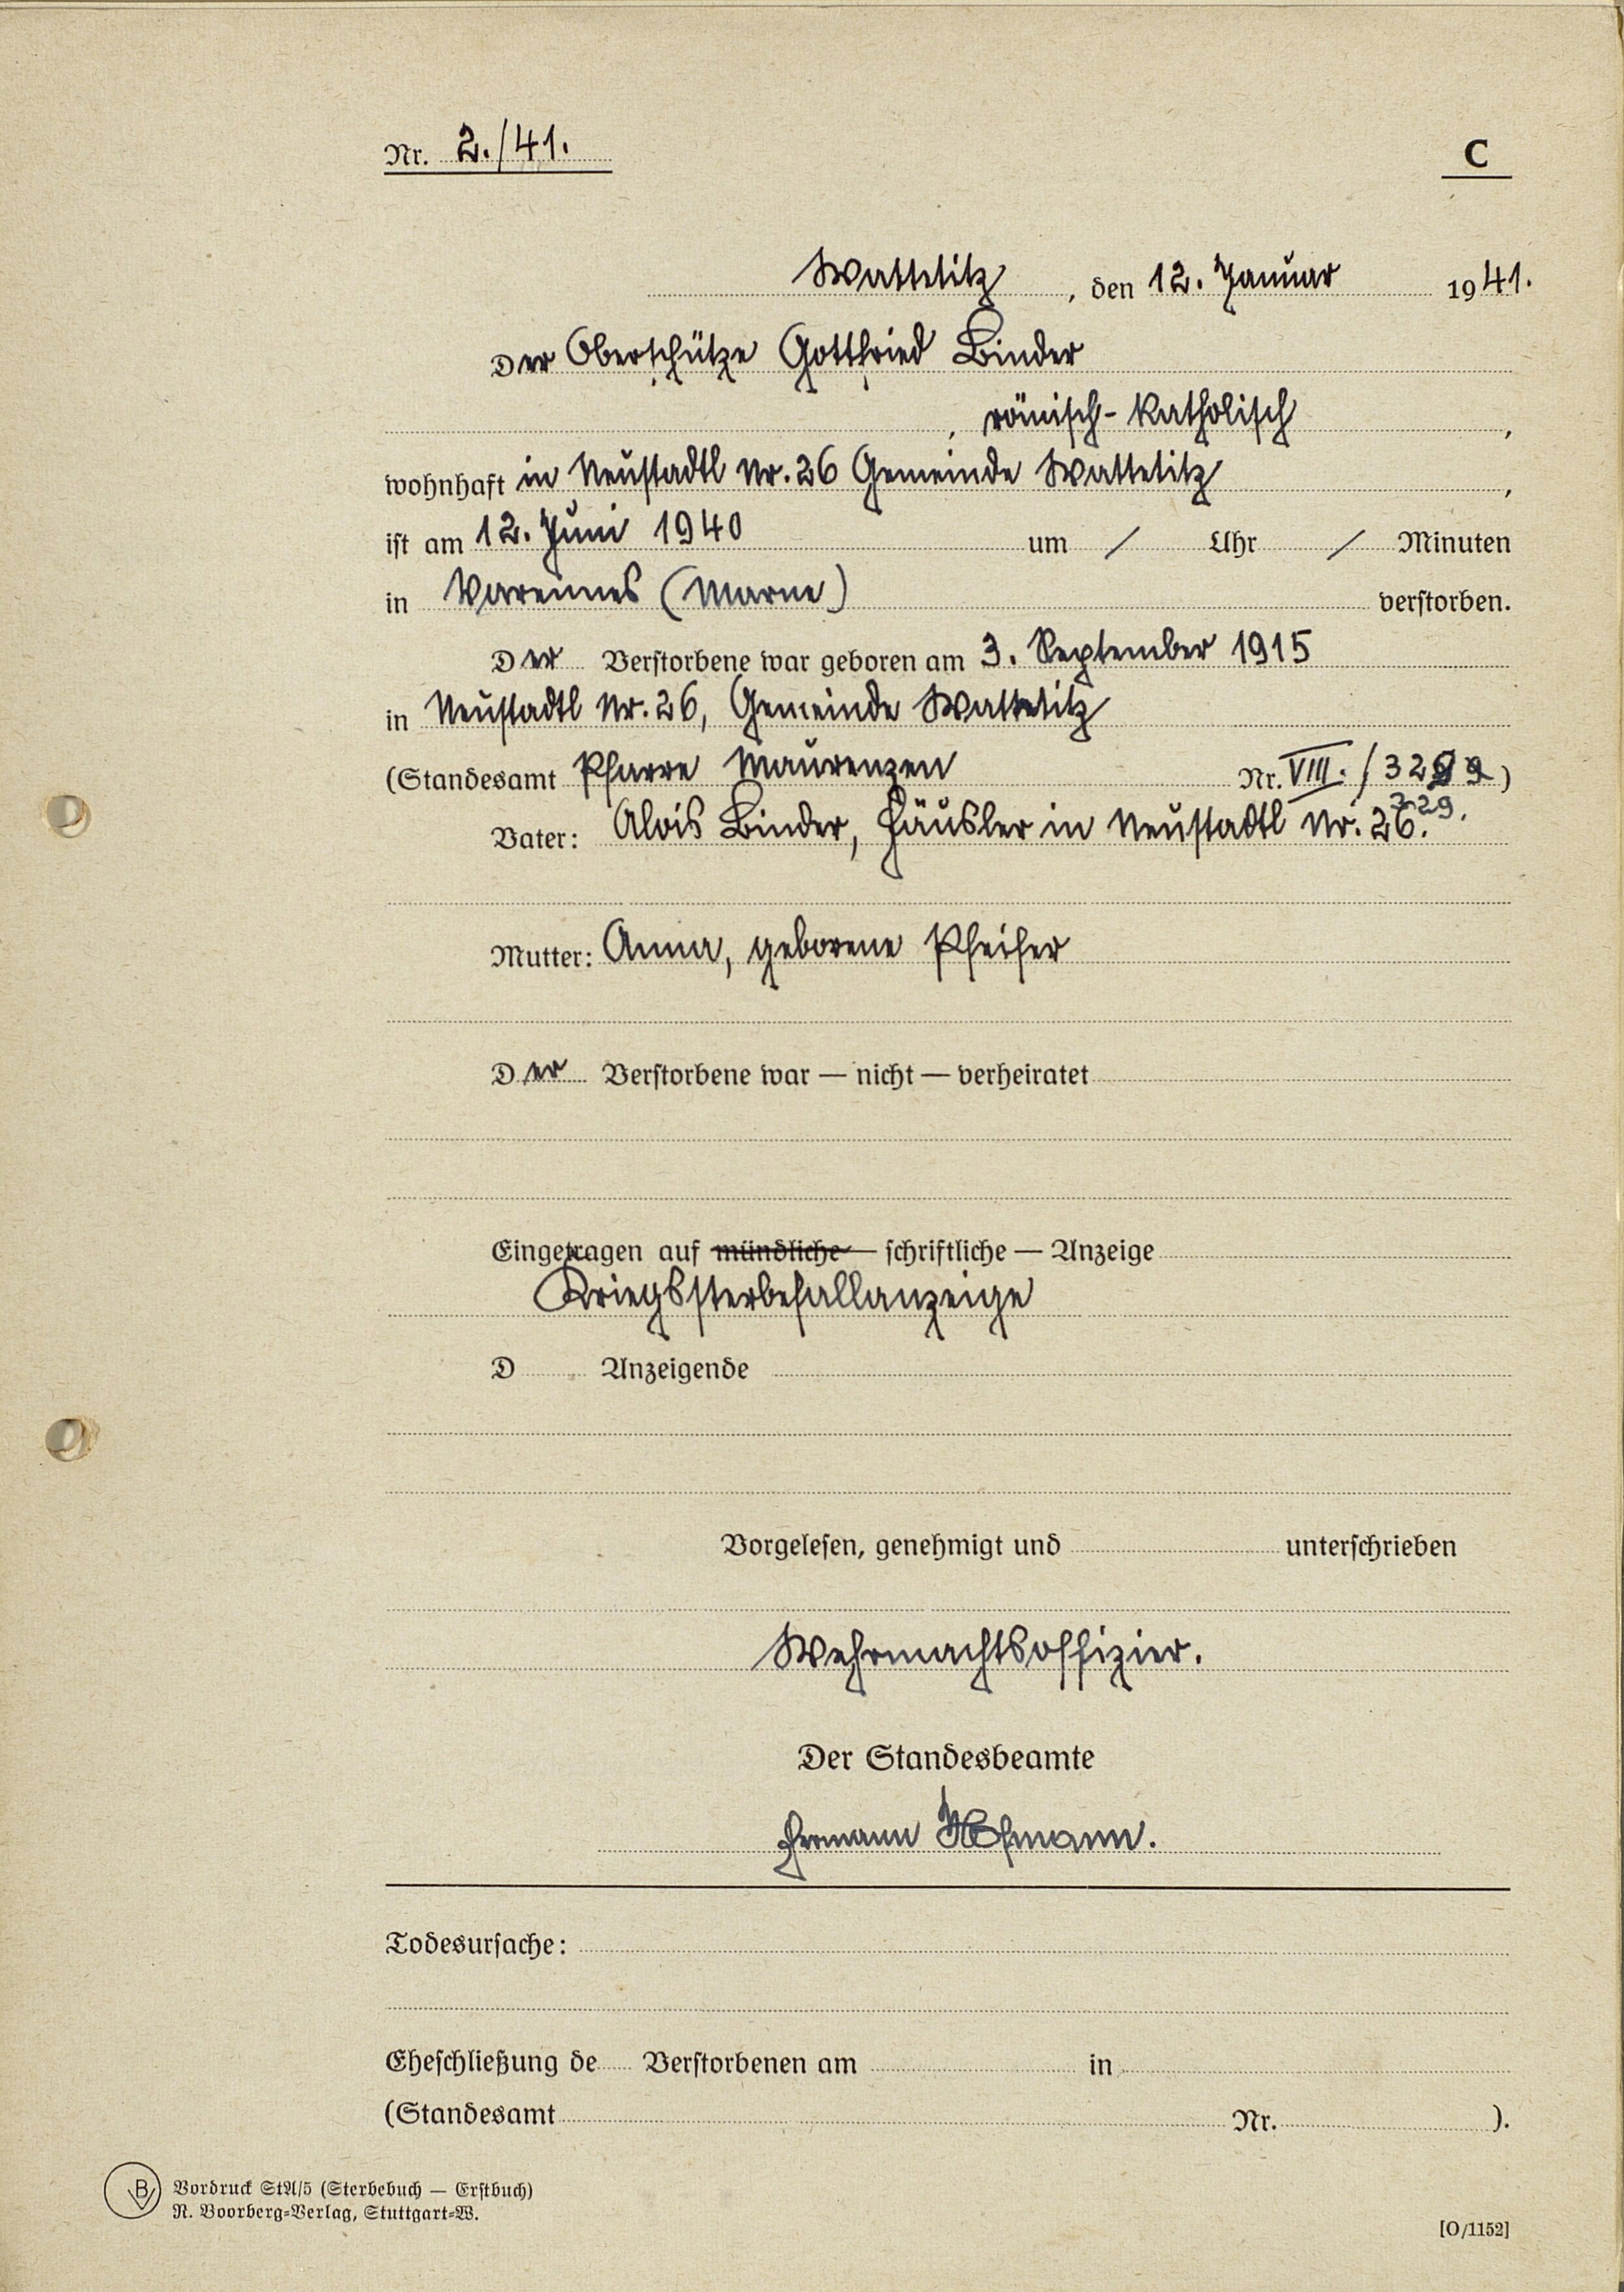 Nr. 2./41.
C
Wattetitz, den 12. Januar 1941.
Der Oberschütze Gottfried Binder
, römisch-katholisch,
wohnhaft in Neustadtl Nr. 26 Gemeinde Wattetitz,
ist am 12. Juni 1940 um / Uhr / Minuten
in Varennes (Marne) verstorben.
Der Verstorbene war geboren am 3. September 1915
in Neustadtl Nr. 26, Gemeinde Wattetitz
(Standesamt Pfarre Maurenzen Nr. VIII./329)
229.
Vater: Alois Binder, Häusler in Neustadtl Nr. 26.
Mutter: Anna, geborene Pfeifer
Der Verstorbene war — nicht — verheiratet
Eingetragen auf mündliche — schriftliche — Anzeige
Kriegssterbefallanzeige
D Anzeigende
Vorgelesen, genehmigt und unterschrieben
Wehrmachtsoffizier.
Der Standesbeamte
Hermann Hofmann.
Todesursache:
Eheschließung de Verstorbenen am in
(Standesamt Nr. ).
B Vordruck StA/5 (Sterbebuch — Erstbuch)
R. Boorberg-Verlag, Stuttgart-W.
[O/1152]